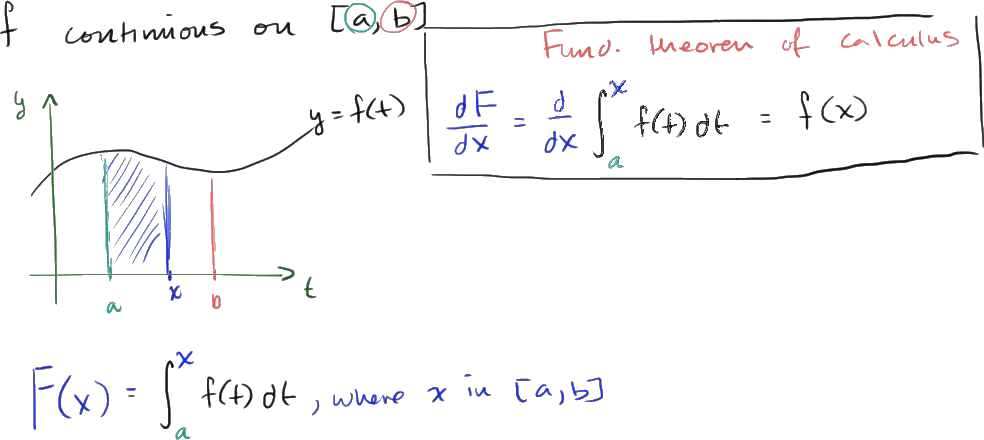 f continuous on [a, b]
Fund. theorem of calculus
dF/dx = d/dx ∫_a^x f(t) dt = f(x)
y
y = f(t)
a
x
b
t
F(x) = ∫_a^x f(t) dt, where x in [a, b]